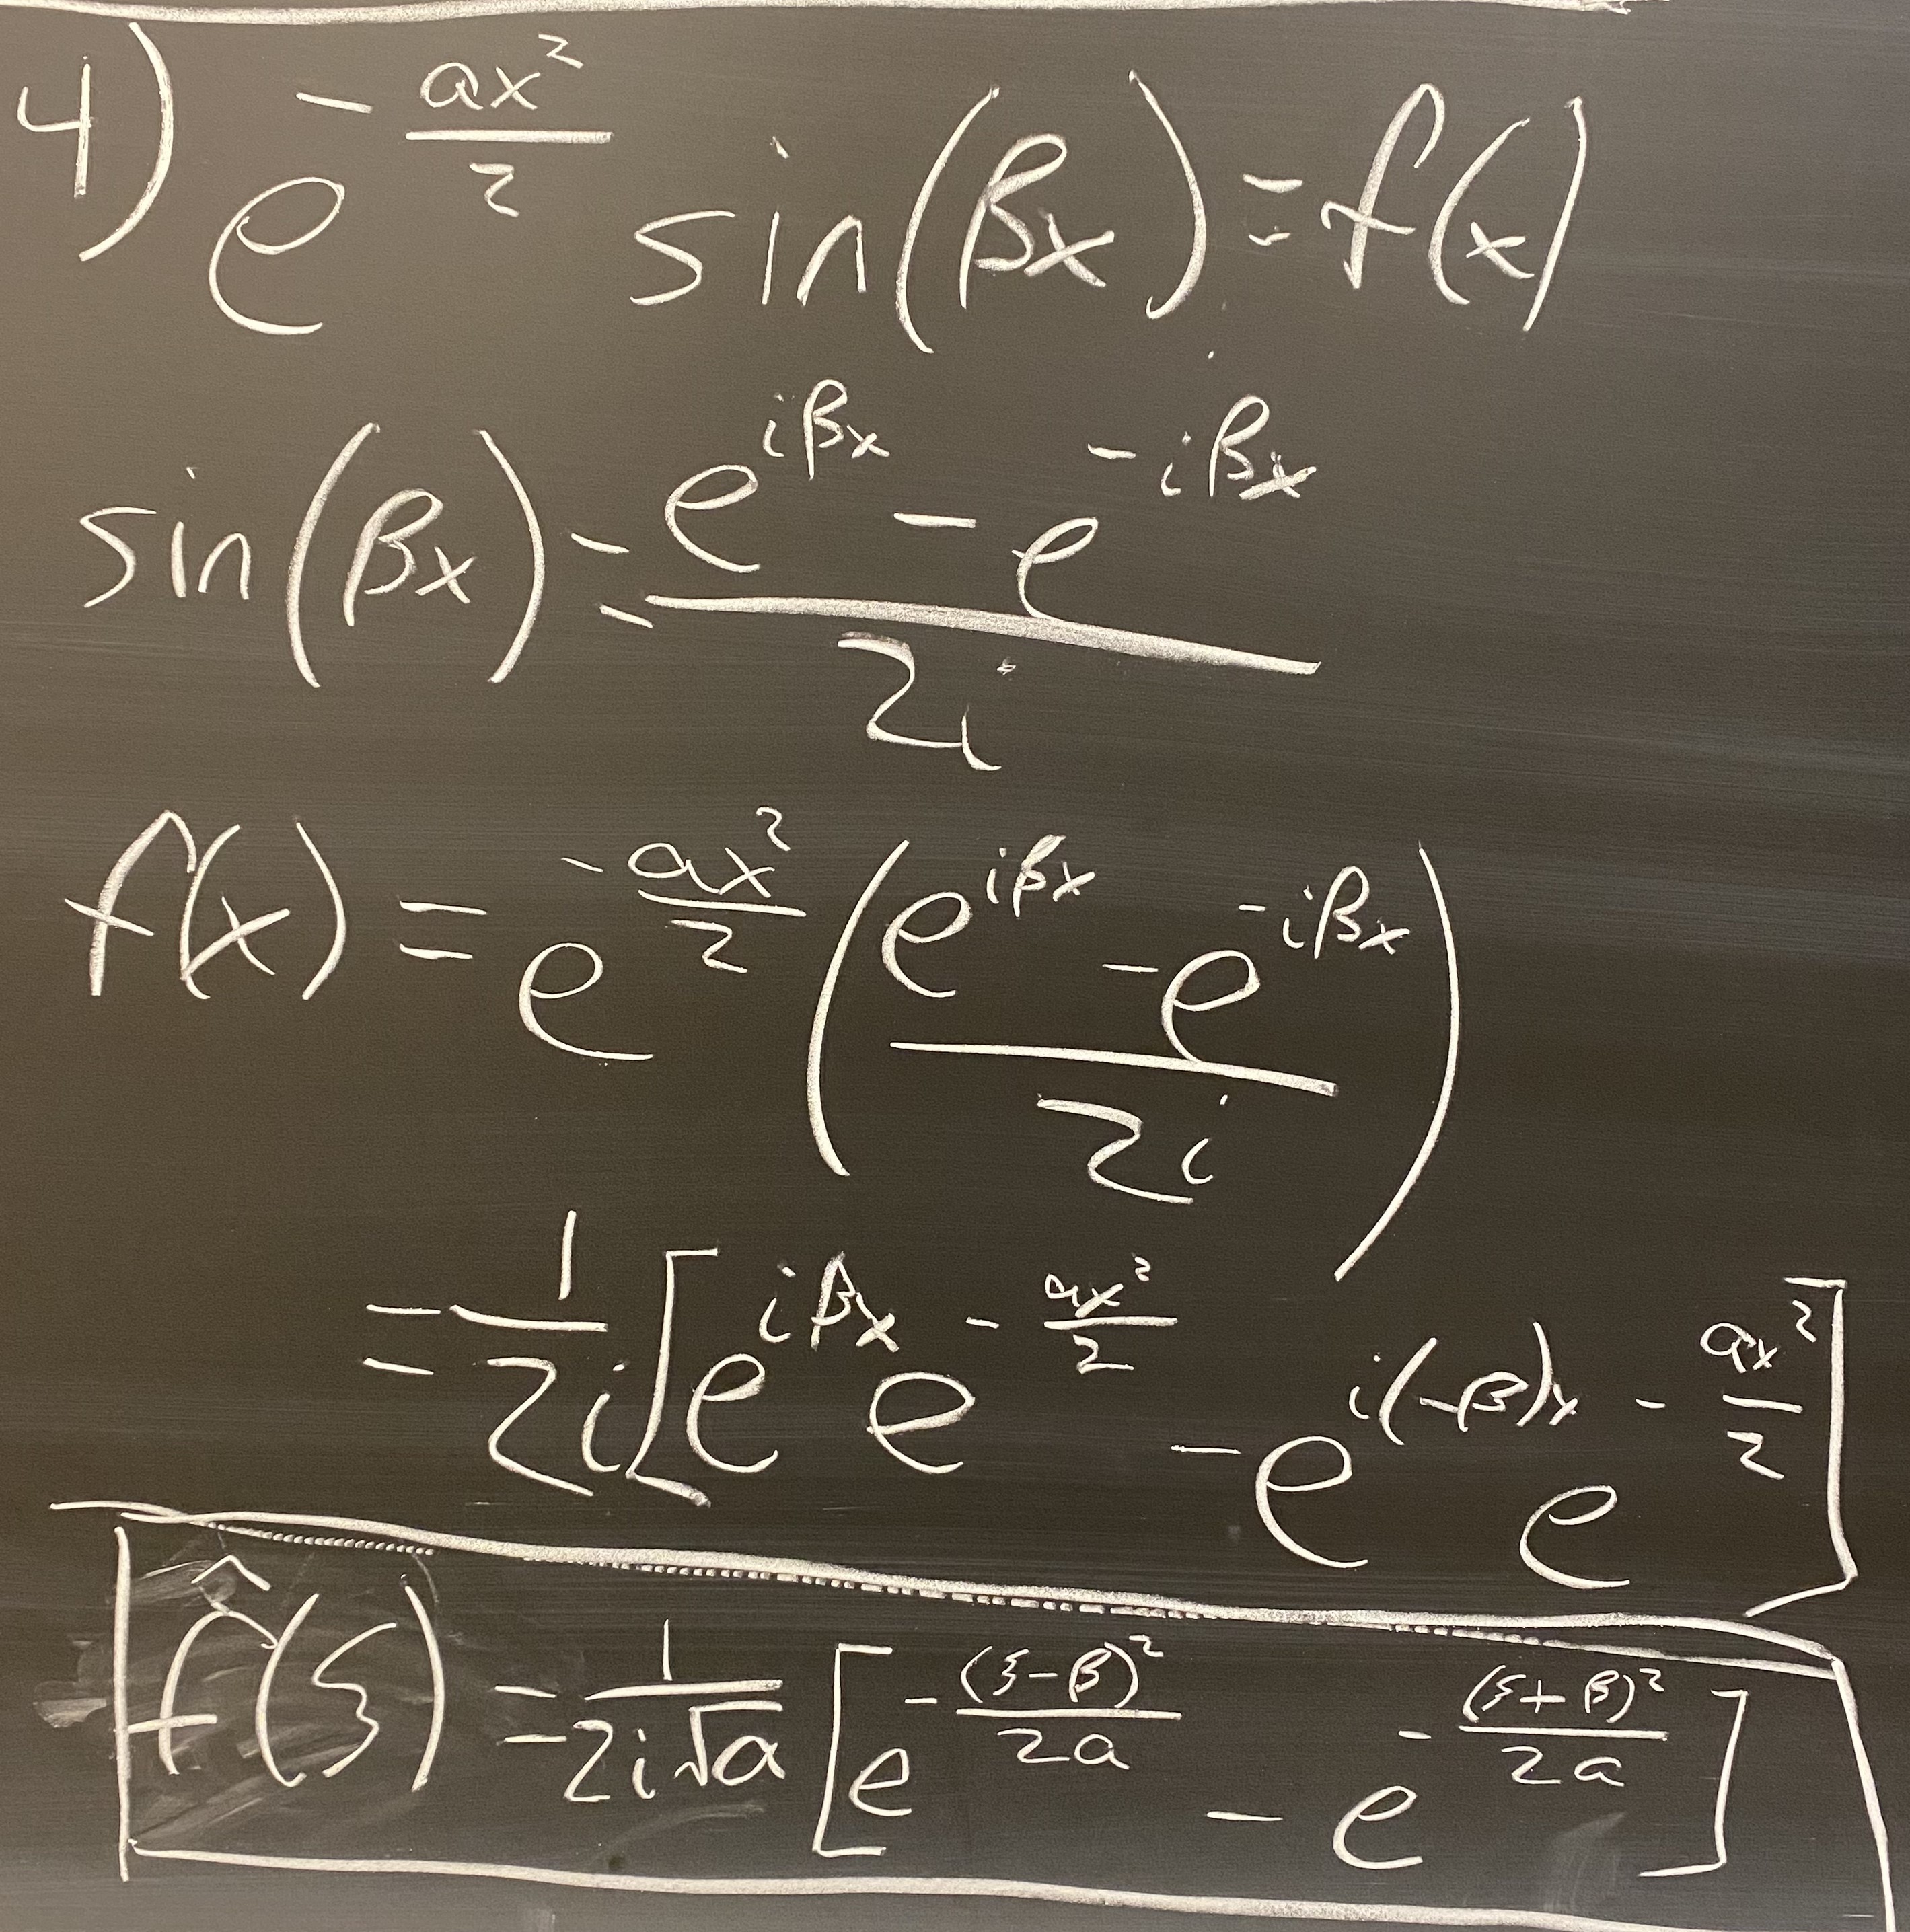 4) e^{-\frac{ax^2}{2}} sin(βx) = f(x)
sin(βx) = \frac{e^{iβx} - e^{-iβx}}{2i}
f(x) = e^{-\frac{ax^2}{2}} \left( \frac{e^{iβx} - e^{-iβx}}{2i} \right)
= \frac{1}{2i} \left[ e^{iβx} e^{-\frac{ax^2}{2}} - e^{i(-β)x} e^{-\frac{ax^2}{2}} \right]
\hat{f}(ξ) = \frac{1}{2i\sqrt{a}} \left[ e^{-\frac{(ξ-β)^2}{2a}} - e^{-\frac{(ξ+β)^2}{2a}} \right]